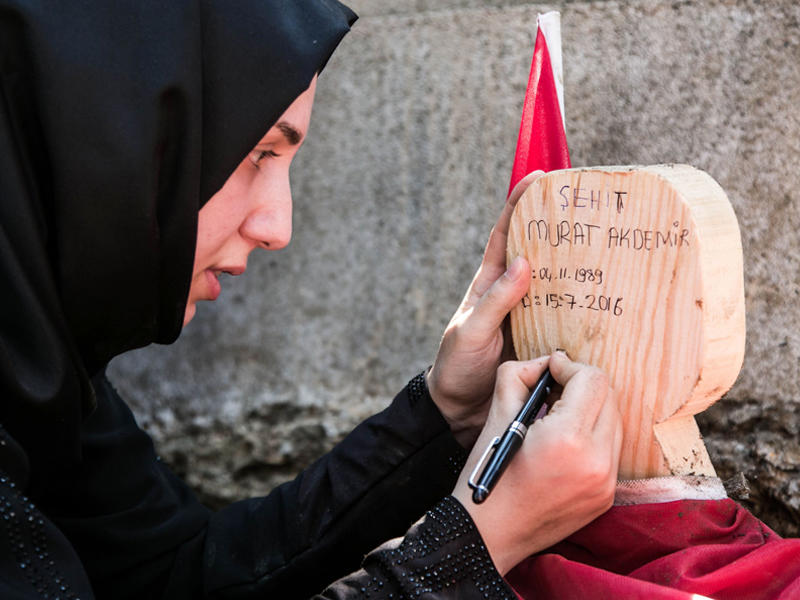 ŞEHİT
MURAT AKDEMİR
: 04.11.1989
: 15.7.2016